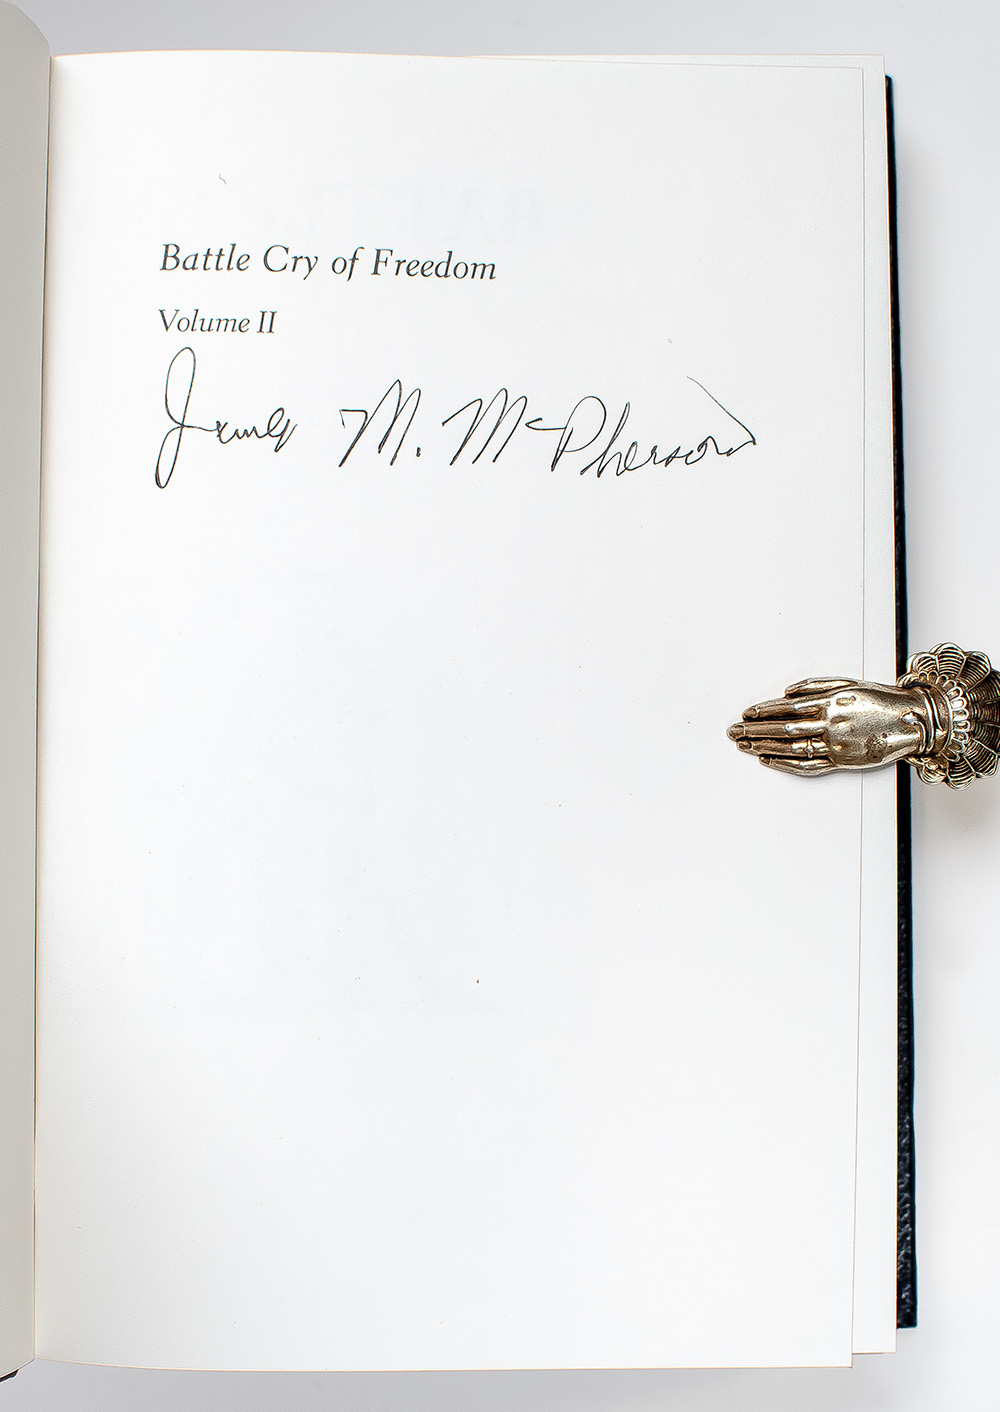 Battle Cry of Freedom
Volume II
James M. McPherson